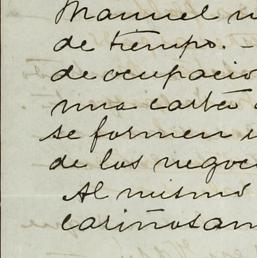 Manuel
de tiempo. –
de ocupacio
una carta
se formen
de los negoc
Al mismo
cariñosam